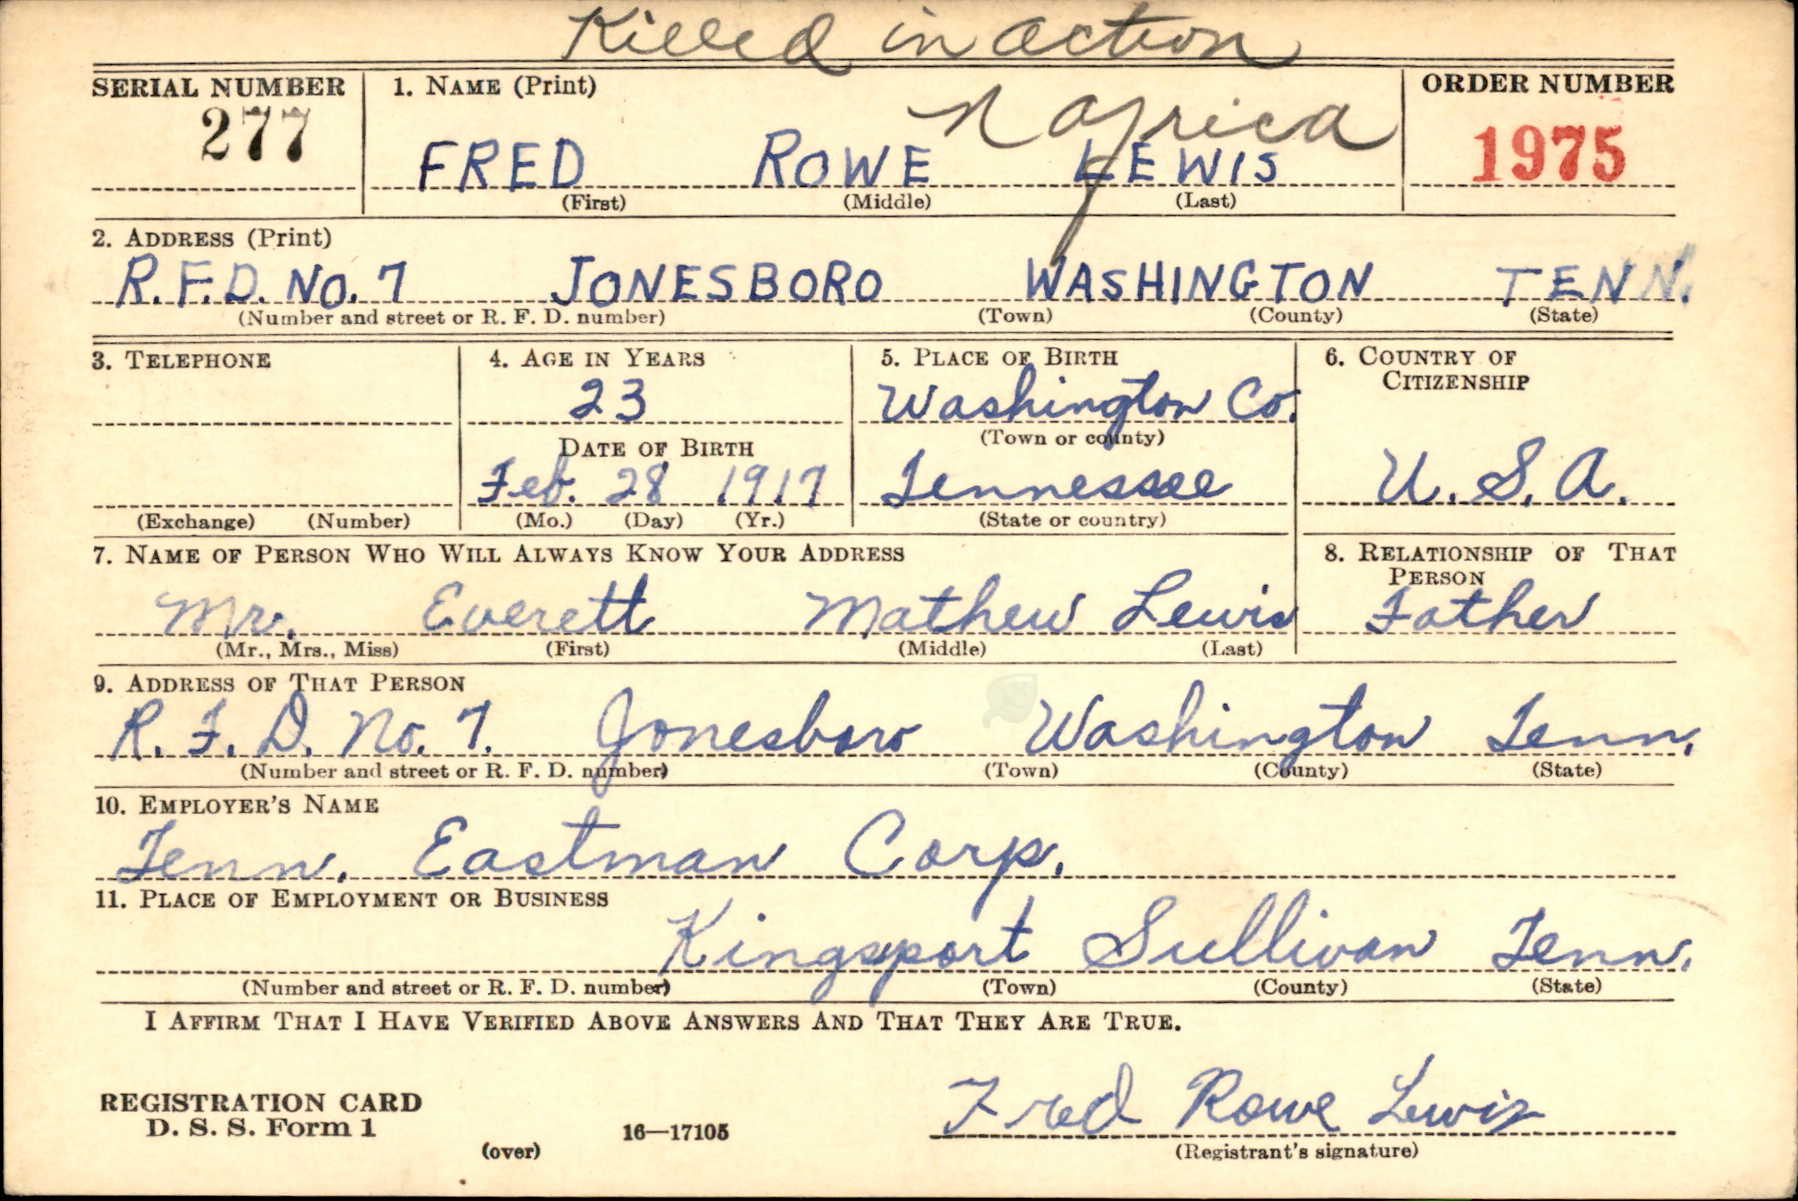 Killed in action
SERIAL NUMBER 1. NAME (Print) ORDER NUMBER
N Africa
277 FRED ROWE LEWIS 1975
(First) (Middle) (Last)
2. ADDRESS (Print)
R.F.D. NO. 7 JONESBORO WASHINGTON TENN.
(Number and street or R. F. D. number) (Town) (County) (State)
3. TELEPHONE 4. AGE IN YEARS 5. PLACE OF BIRTH 6. COUNTRY OF
CITIZENSHIP
23 Washington Co.
DATE OF BIRTH (Town or county)
Feb. 28 1917 Tennessee U.S.A.
(Exchange) (Number) (Mo.) (Day) (Yr.) (State or country)
7. NAME OF PERSON WHO WILL ALWAYS KNOW YOUR ADDRESS 8. RELATIONSHIP OF THAT
PERSON
Mr. Everett Mathew Lewis Father
(Mr., Mrs., Miss) (First) (Middle) (Last)
9. ADDRESS OF THAT PERSON
R.F.D. No. 7. Jonesboro Washington Tenn.
(Number and street or R. F. D. number) (Town) (County) (State)
10. EMPLOYER'S NAME
Tenn. Eastman Corp.
11. PLACE OF EMPLOYMENT OR BUSINESS
Kingsport Sullivan Tenn.
(Number and street or R. F. D. number) (Town) (County) (State)
I AFFIRM THAT I HAVE VERIFIED ABOVE ANSWERS AND THAT THEY ARE TRUE.
REGISTRATION CARD
D. S. S. Form 1 16—17105 Fred Rowe Lewis
(over) (Registrant's signature)